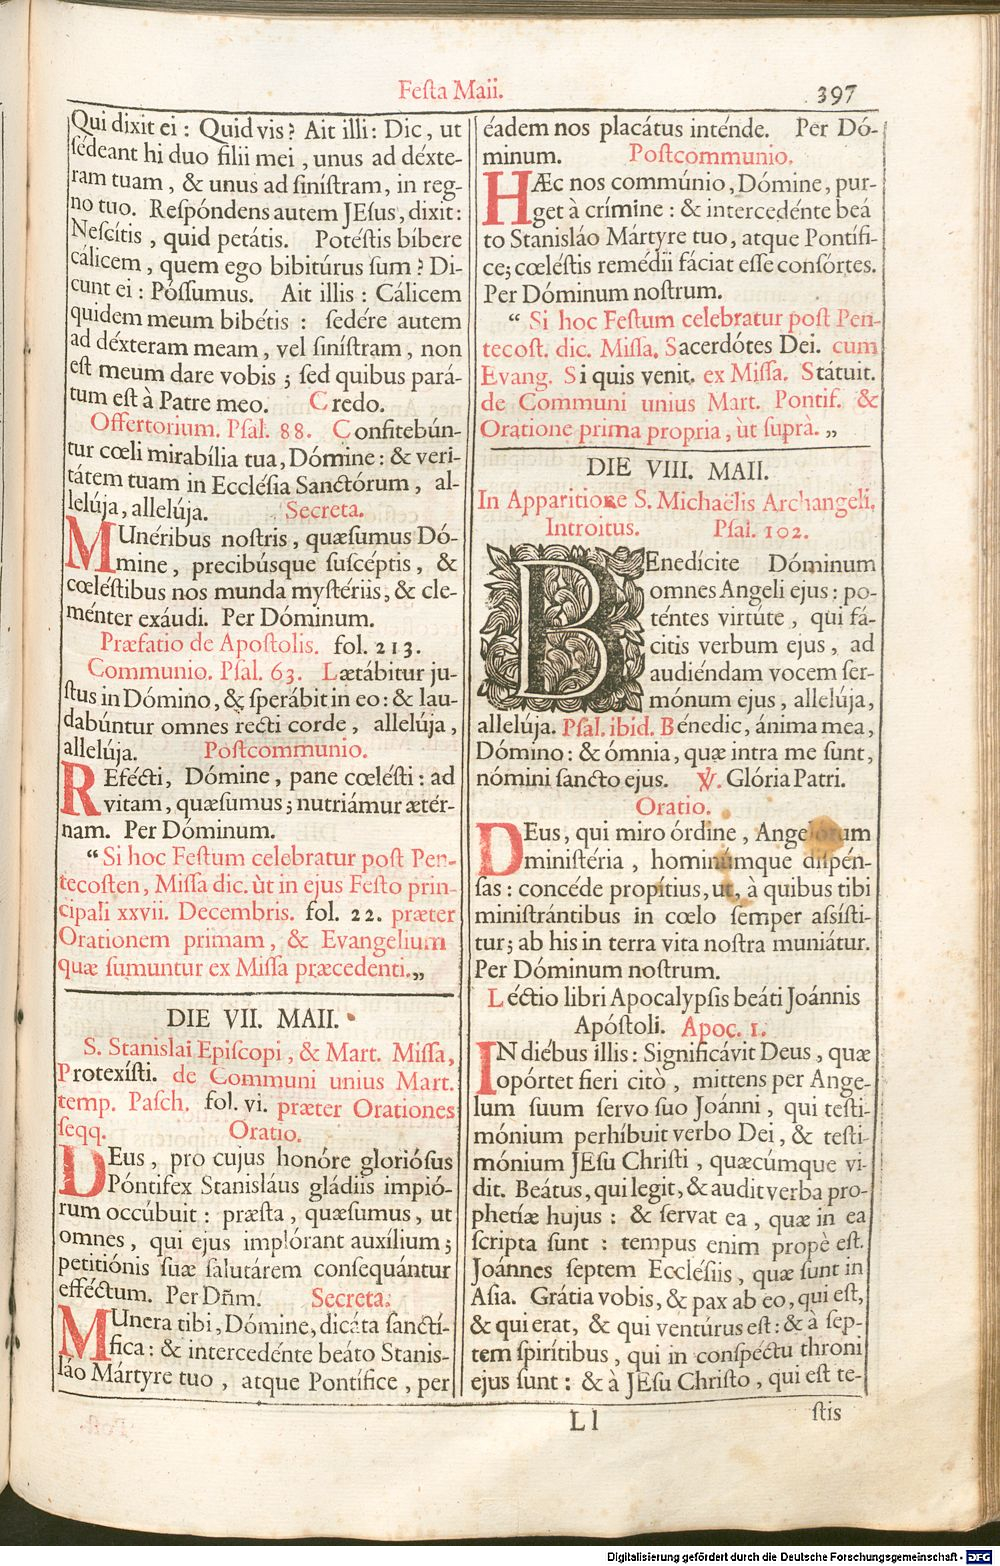 Festa Maii. 397
Qui dixit ei : Quid vis? Ait illi : Dic, ut
sédeant hi duo filii mei, unus ad déxte-
ram tuam, & unus ad siníſtram, in reg-
no tuo. Reſpóndens autem JEſus, dixit:
Neſcítis, quid petátis. Potéſtis bíbere
cálicem, quem ego bibitúrus ſum? Di-
cunt ei : Póſſumus. Ait illis : Cálicem
quidem meum bibétis : ſedére autem
ad déxteram meam, vel ſiníſtram, non
eſt meum dare vobis ; ſed quibus pará-
tum eſt à Patre meo. Credo.
Offertorium. Pſal. 88. Confitebún-
tur cœli mirabília tua, Dómine : & veri-
tátem tuam in Eccléſia Sanctórum, al-
lelúja, allelúja. Secreta.
MUnéribus noſtris, quæſumus Dó-
mine, precibúsque ſuſcéptis, &
cœléſtibus nos munda myſtériis, & cle-
ménter exáudi. Per Dóminum.
Præfatio de Apoſtolis. fol. 213.
Communio. Pſal. 63. Lætábitur ju-
ſtus in Dómino, & ſperábit in eo : & lau-
dabúntur omnes recti corde, allelúja,
allelúja. Poſtcommunio.
REfécti, Dómine, pane cœléſti : ad
vitam, quæſumus ; nutriámur ætér-
nam. Per Dóminum.
“ Si hoc Feſtum celebratur poſt Pen-
tecoſten, Miſſa dic. ùt in ejus Feſto prin-
cipali xxvii. Decembris. fol. 22. præter
Orationem primam, & Evangelium
quæ ſumuntur ex Miſſa præcedenti.„
DIE VII. MAII.
S. Stanislai Epiſcopi, & Mart. Miſſa,
Protexíſti. de Communi unius Mart.
temp. Paſch. fol. vi. præter Orationes
ſeqq. Oratio.
DEus, pro cujus honóre glorióſus
Póntifex Stanisláus gládiis impió-
rum occúbuit : præſta, quæſumus, ut
omnes, qui ejus implórant auxílium ;
petitiónis ſuæ ſalutárem conſequántur
effectum. Per Dñm. Secreta.
MUnera tibi, Dómine, dicáta ſanctí-
fica : & intercedénte beáto Stanis-
láo Mártyre tuo, atque Pontífice, per
éadem nos placátus inténde. Per Dó-
minum. Poſtcommunio.
HÆc nos commúnio, Dómine, pur-
get à crímine : & intercedénte beá
to Stanisláo Mártyre tuo, atque Pontífi-
ce; cœléſtis remédii fáciat eſſe conſórtes.
Per Dóminum noſtrum.
“ Si hoc Feſtum celebratur poſt Pen-
tecoſt. dic. Miſſa. Sacerdótes Dei. cum
Evang. Si quis venit. ex Miſſa. Státuit.
de Communi unius Mart. Pontif. &
Oratione prima propria, ùt ſuprà.„
DIE VIII. MAII.
In Apparitione S. Michaëlis Archangeli.
Introitus. Pſal. 102.
BEnedícite Dóminum
omnes Angeli ejus : po-
téntes virtúte, qui fá-
citis verbum ejus, ad
audiéndam vocem ſer-
mónum ejus, allelúja,
allelúja. Pſal. ibid. Bénedic, ánima mea,
Dómino : & ómnia, quæ intra me ſunt,
nómini ſancto ejus. ℣. Glória Patri.
Oratio.
DEus, qui miro órdine, Angelorum
miniſtéria, hominúmque diſpén-
ſas : concéde propítius, ut, à quibus tibi
miniſtrántibus in cœlo ſemper aſſíſti-
tur; ab his in terra vita noſtra muniátur.
Per Dóminum noſtrum.
Léctio libri Apocalypſis beáti Joánnis
Apóſtoli. Apoc. 1.
IN diébus illis : Significávit Deus, quæ
opórtet fieri citò, mittens per Ange-
lum ſuum ſervo ſuo Joánni, qui teſti-
mónium perhíbuit verbo Dei, & teſti-
mónium JEſu Chriſti, quæcúmque vi-
dit. Beátus, qui legit, & audit verba pro-
phetíæ hujus : & ſervat ea, quæ in ea
ſcripta ſunt : tempus enim propè eſt.
Joánnes ſeptem Eccléſiis, quæ ſunt in
Aſia. Grátia vobis, & pax ab eo, qui eſt,
& qui erat, & qui ventúrus eſt : & à ſep-
tem ſpirítibus, qui in conſpéctu throni
ejus ſunt : & à JEſu Chriſto, qui eſt te-
Ll ſtis
Digitalisierung gefördert durch die Deutsche Forschungsgemeinschaft - DFG